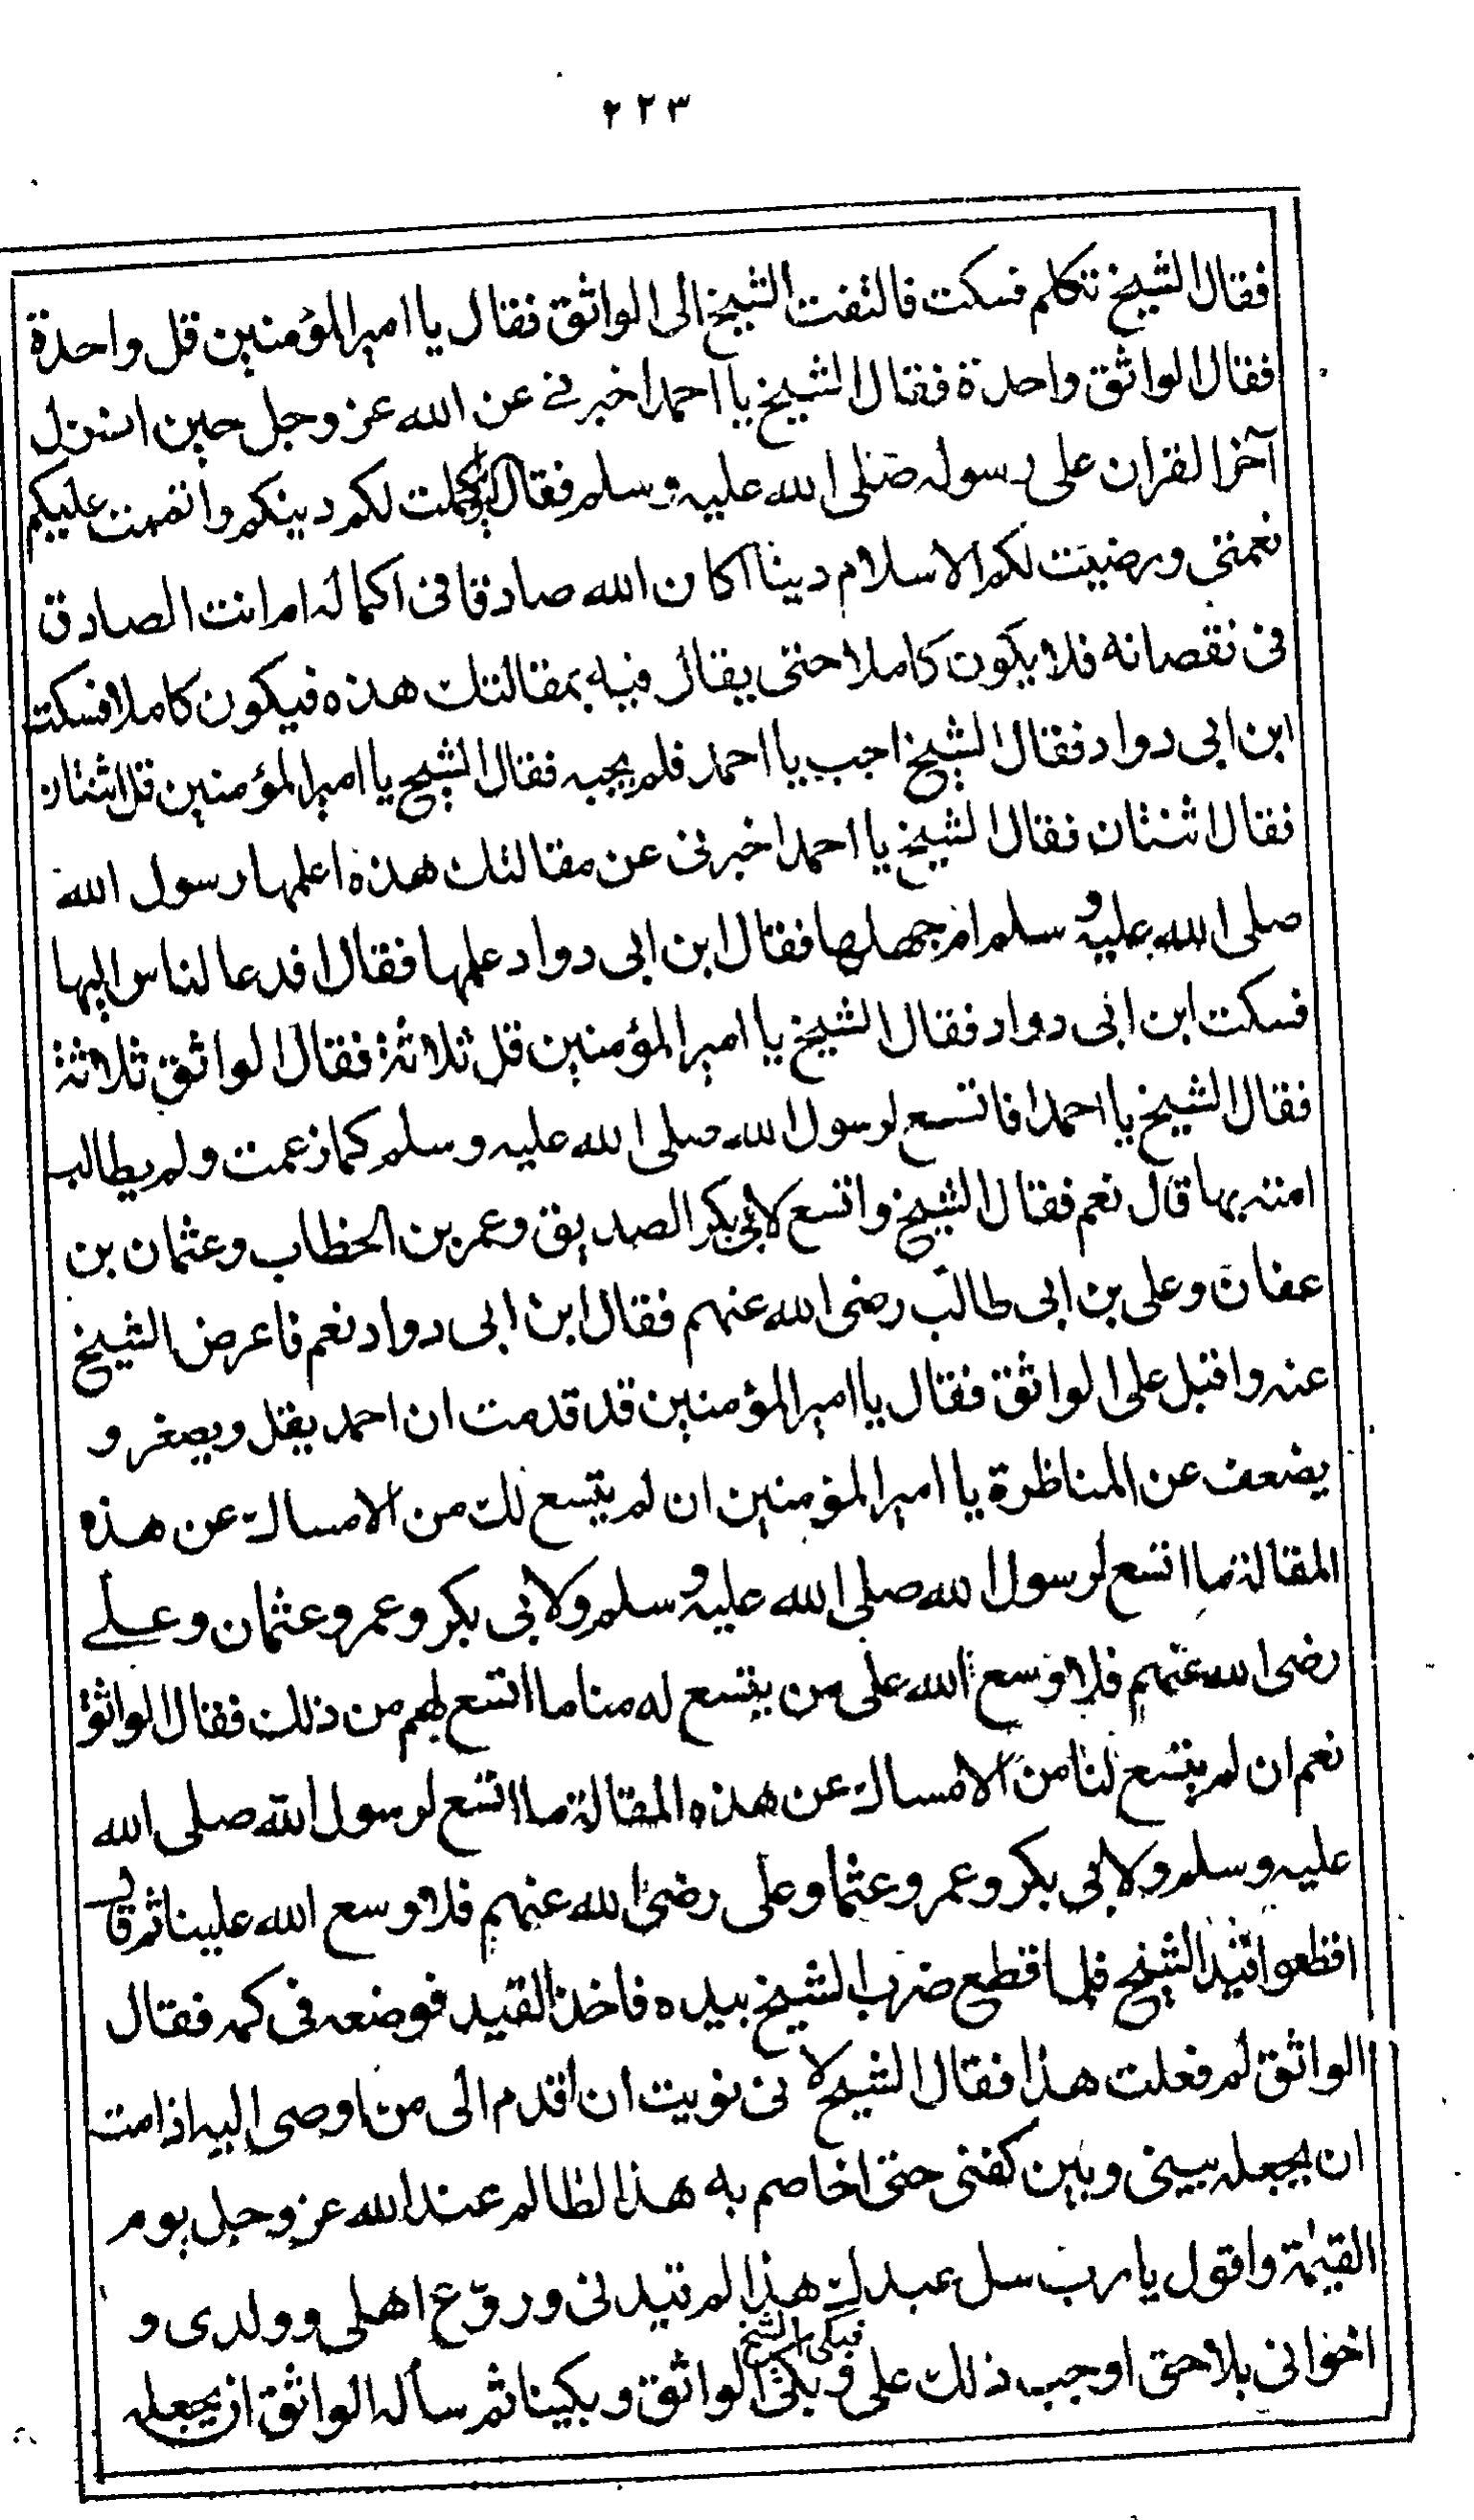 ٢٢٣
فقال الشيخ تتكلم فسكت فالتفت الشيخ الى الواثق فقال يا امير المؤمنين قل واحدة
فقال الواثق واحدة فقال الشيخ يا احمد اخبرنى عن الله عز وجل حين انزل
آخر القران على رسوله صلى الله عليه وسلم فقال اليوم اكملت لكم دينكم واتممت عليكم
نعمتى ورضيت لكم الاسلام دينا اكان الله صادقا فى اكماله ام انت الصادق
فى نقصانه فلا يكون كاملا حتى يقال فيه بمقالتك هذه فيكون كاملا فسكت
ابن ابى دواد فقال الشيخ اجب يا احمد فلم يجبه فقال الشيخ يا امير المؤمنين قل اثنتان
فقال اثنتان فقال الشيخ يا احمد اخبرنى عن مقالتك هذه اعلمها رسول الله
صلى الله عليه وسلم ام جهلها فقال ابن ابى دواد علمها فقال افدعا لناس اليها
فسكت ابن ابى دواد فقال الشيخ يا امير المؤمنين قل ثلاثة فقال الواثق ثلاثة
فقال الشيخ يا احمد افاتسع لرسول الله صلى الله عليه وسلم كما زعمت ولم يطالب
امته بها قال نعم فقال الشيخ واتسع لابى بكر الصديق وعمر بن الخطاب وعثمان بن
عفان وعلى بن ابى طالب رضى الله عنهم فقال ابن ابى دواد نعم فاعرض الشيخ
عنه واقبل على الواثق فقال يا امير المؤمنين قد قدمت ان احمد يقل ويصغر و
يضعف عن المناظرة يا امير المؤمنين ان لم يتسع لك من الامساك عن هذه
المقالة ما اتسع لرسول الله صلى الله عليه وسلم ولابى بكر وعمر وعثمان وعلى
رضى الله عنهم فلا وسع الله على من يتسع له منا ما اتسع لهم من ذلك فقال الواثق
نعم ان لم يتسع لنا من الامساك عن هذه المقالة ما اتسع لرسول الله صلى الله
عليه وسلم ولابى بكر وعمر وعثما وعلى رضى الله عنهم فلا وسع الله علينا ثم قال
اقطعوا قيد الشيخ فلما قطع ضرب الشيخ بيده فاخذ القيد فوضعه فى كمه فقال
الواثق لم فعلت هذا فقال الشيخ لانى نويت ان اقدم الى من اوصى اليه اذا مت
ان يجعله بينى وبين كفنى حتى اخاصم به هذا لظالم عند الله عز وجل يوم
القيمة واقول يا رب سل عبدك هذا لم قيدنى وروّع اهلى وولدى و
اخوانى بلا حق اوجب ذلك على فبكى الشيخ وبكى الواثق وبكينا ثم سأله الواثق ان يجعله